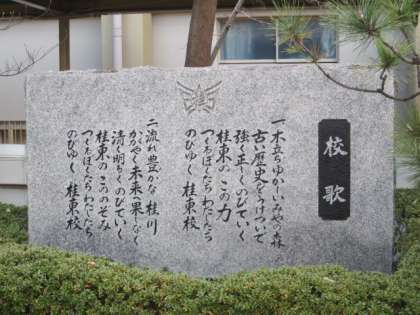 校歌
一 木立ちゆかしいみやの森
古い歴史をうけついで
強く正しくのびていく
桂東の この力
つくるぼくたちわたしたち
のびゆく 桂東校
二 流れ豊かな 桂川
かがやく未来へ果しなく
清く明るくのびていく
桂東の こののぞみ
つくるぼくたちわたしたち
のびゆく 桂東校